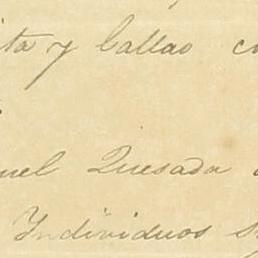 ita y Callao co
uel Quesada
Individuos s